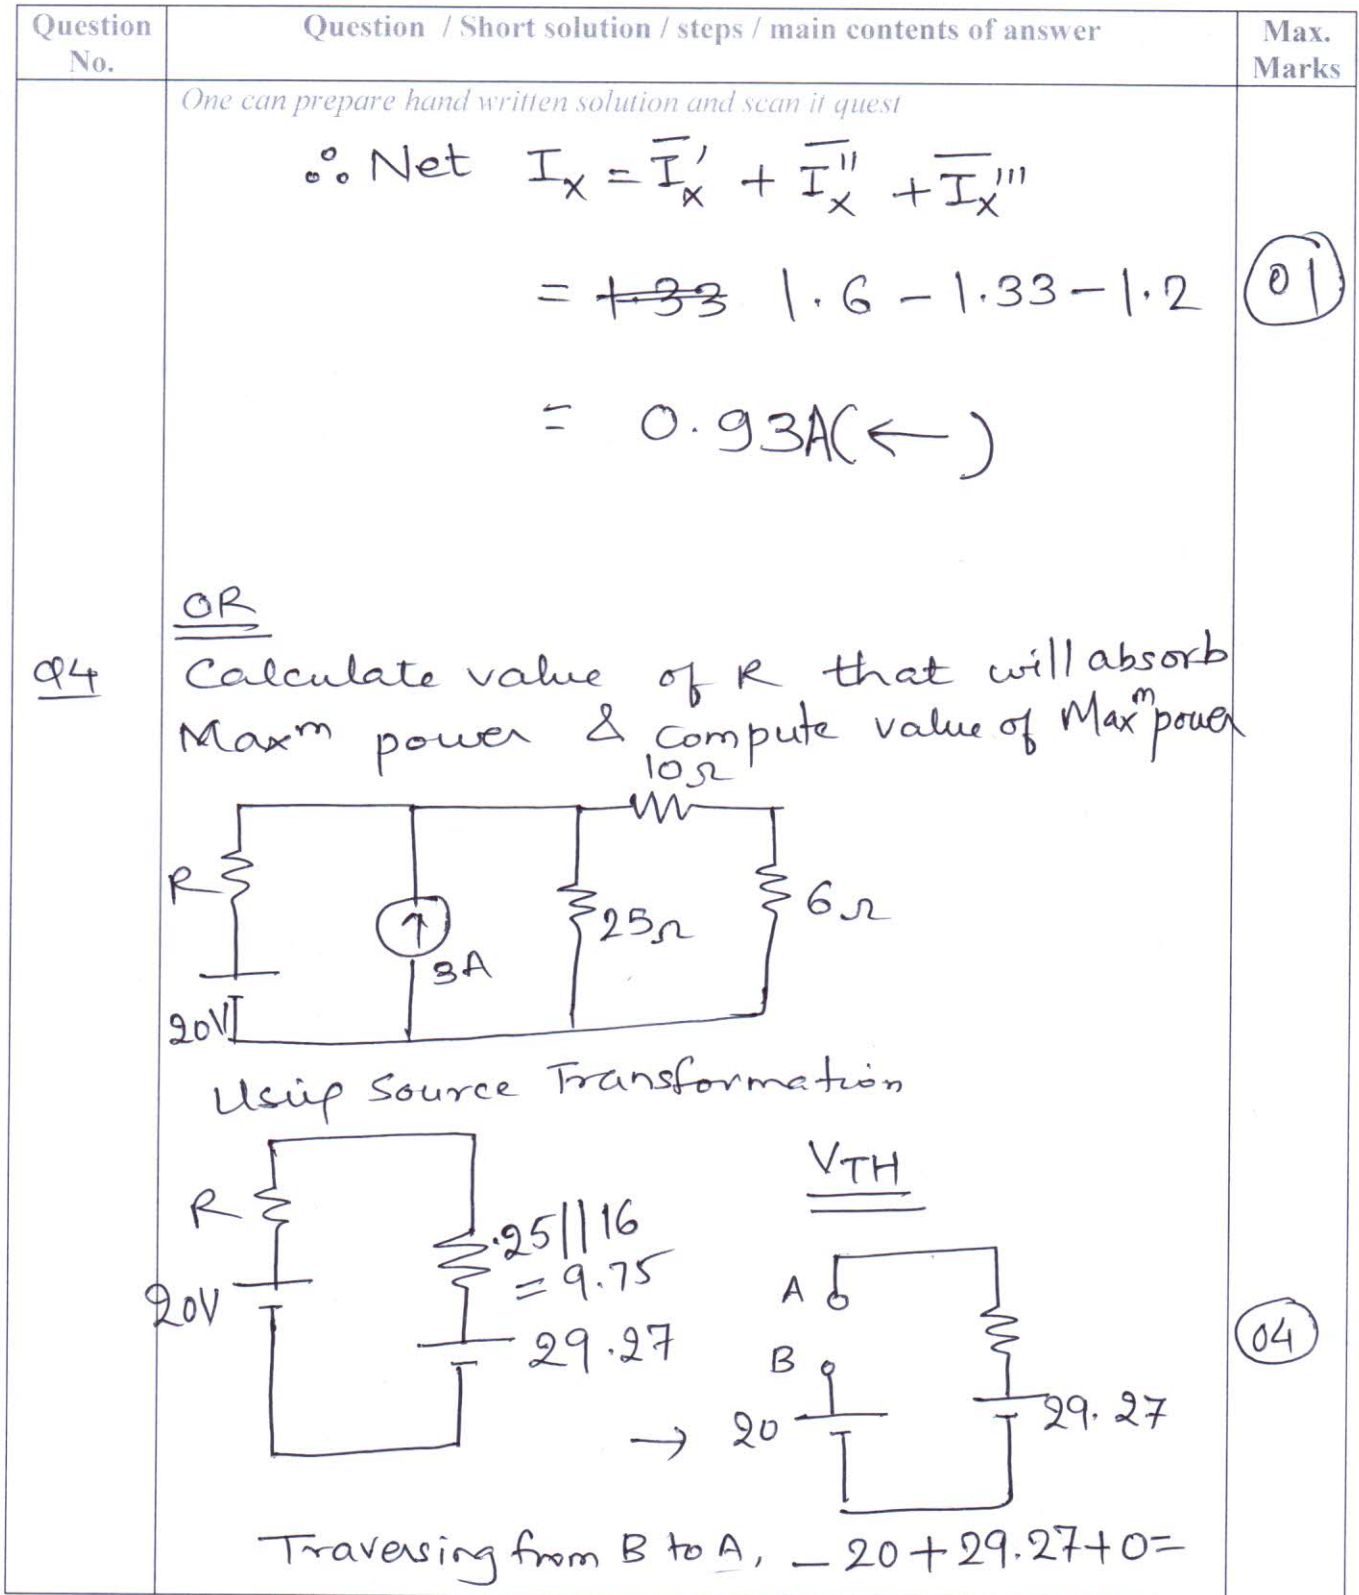 Question No.
Question / Short solution / steps / main contents of answer
Max. Marks
One can prepare hand written solution and scan it quest
∴ Net I_x = I_x' + I_x'' + I_x'''
= 1.33 1.6 - 1.33 - 1.2
01
= 0.93A(←)
OR
Q4
Calculate value of R that will absorb
Maxᵐ power & compute value of Maxᵐ power
10Ω
R
6Ω
25Ω
3A
20V
Using Source Transformation
V_TH
R
25||16
= 9.75
20V
29.27
A
B
→ 20
29.27
04
Traversing from B to A, - 20 + 29.27 + 0 =